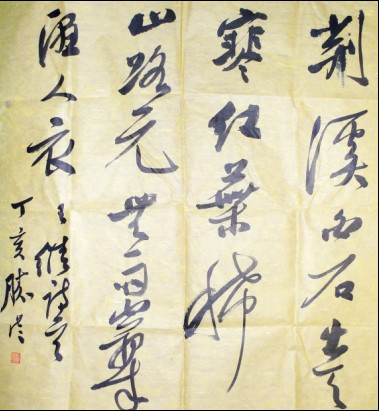 荆溪白石出天
寒红葉稀
山路元無雨空翠
溼人衣 王維詩
丁亥